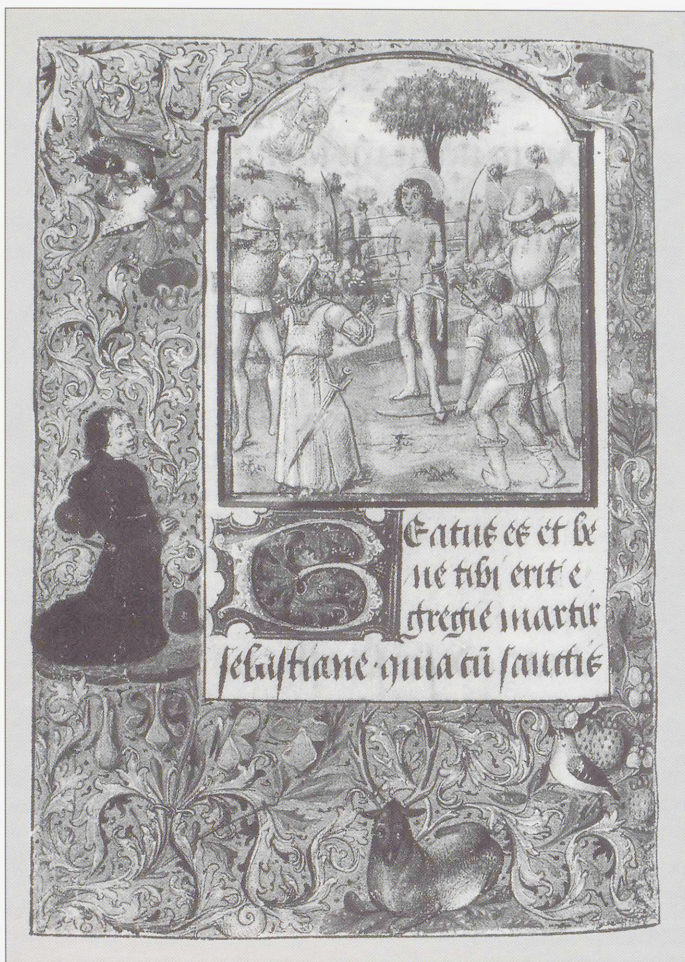 Beatus es et be
ne tibi erit e
gregie martir
sebastiane·quia cū sanctis